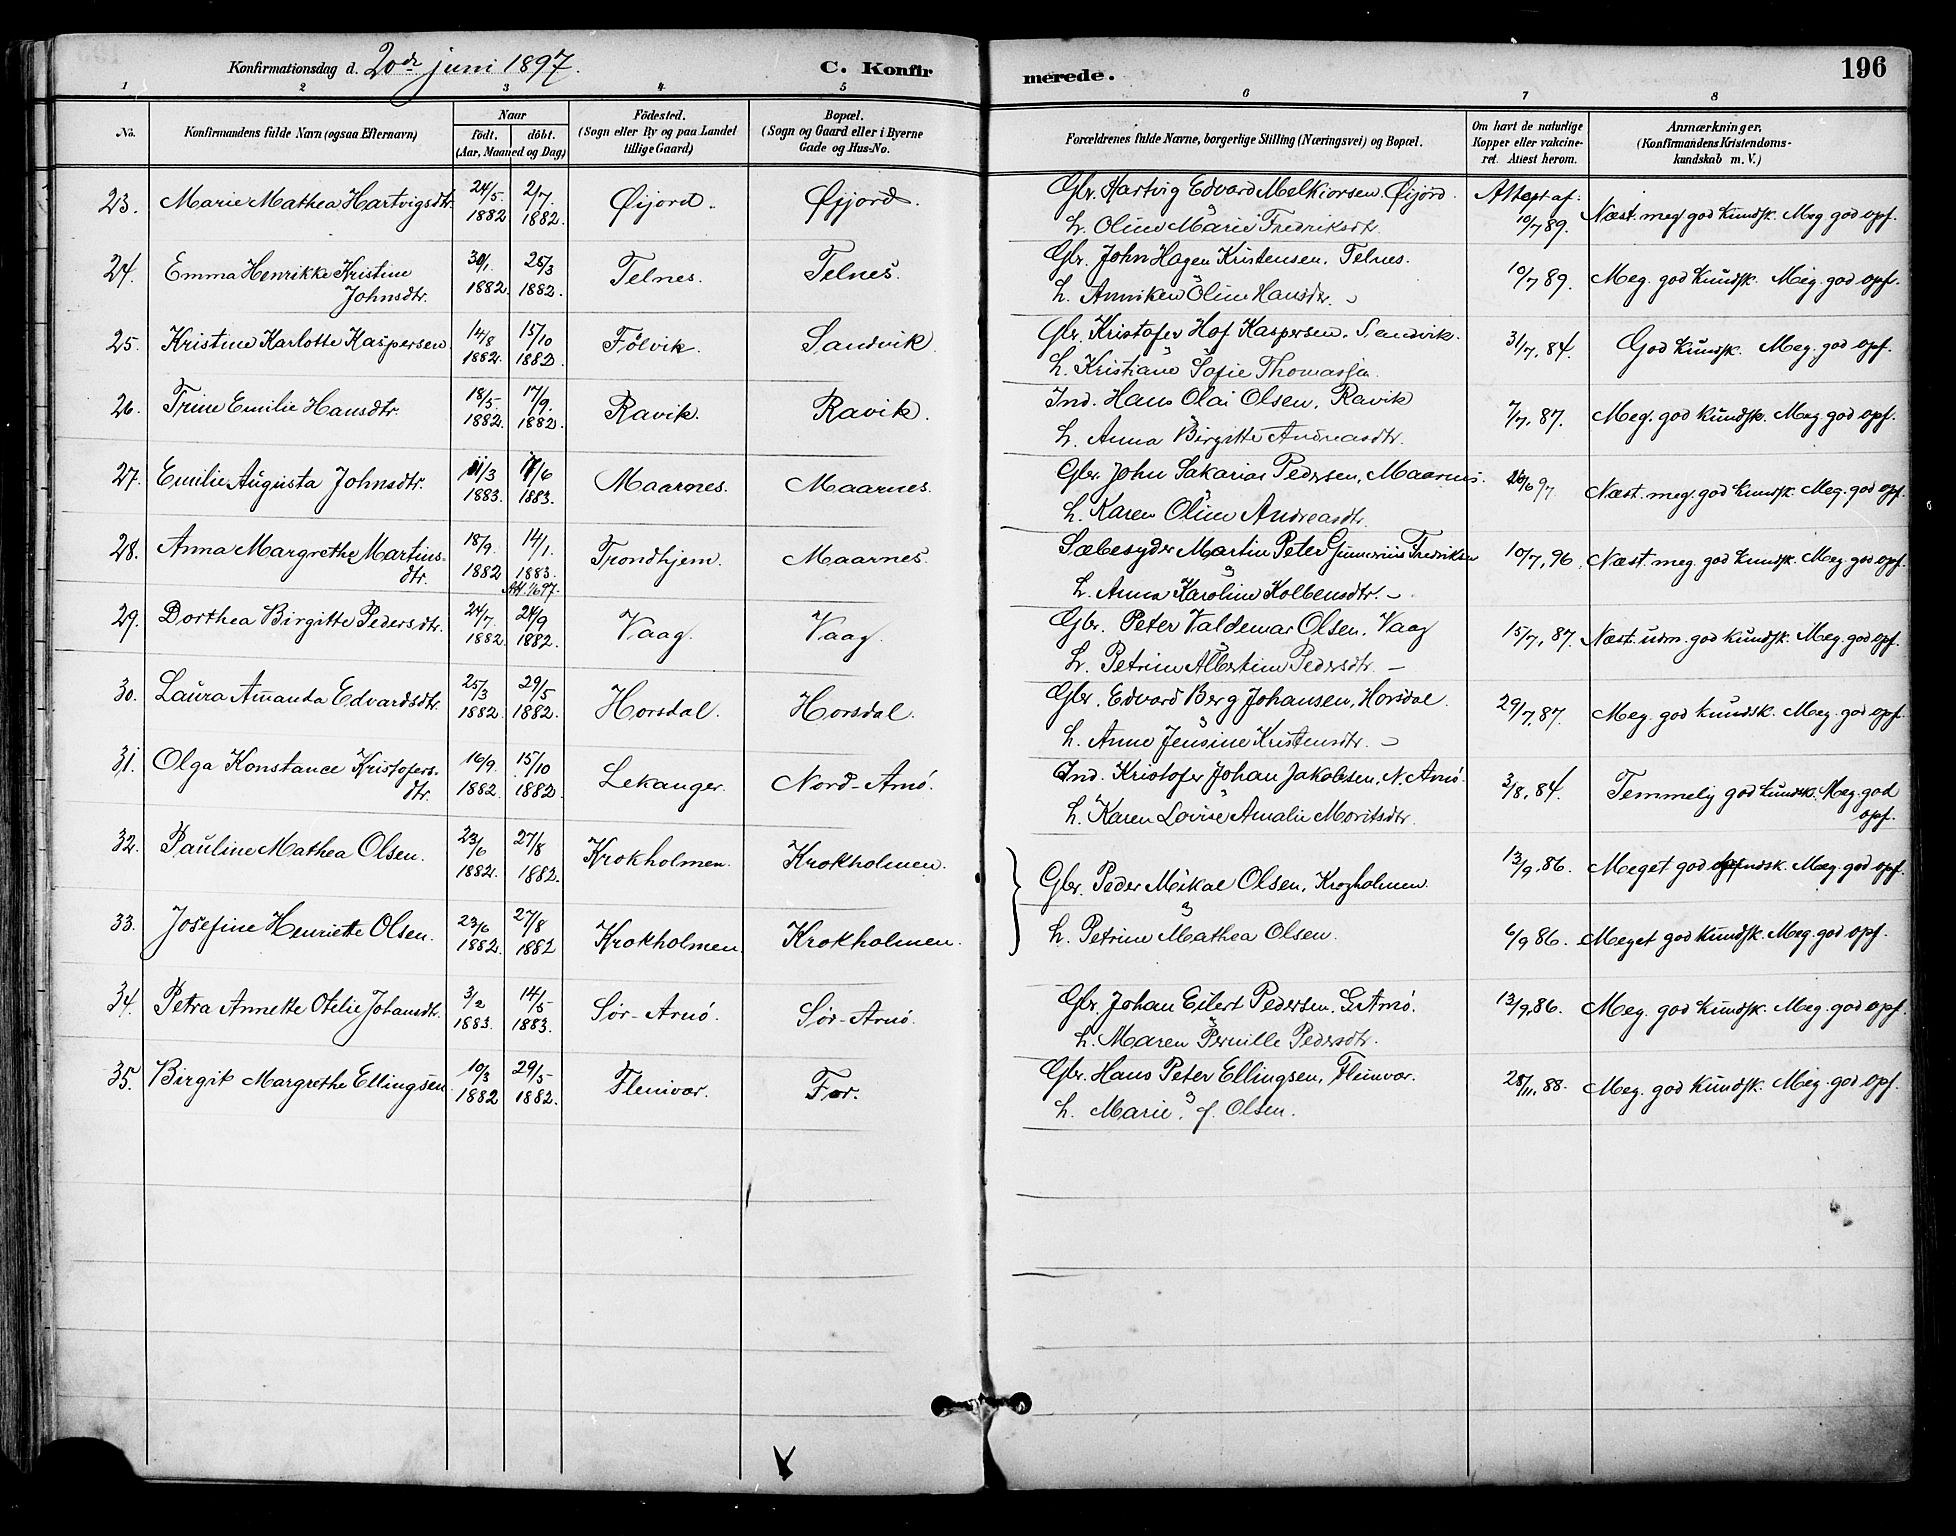 Konfirmationsdag d. 20de juni 1897. C. Konfirmerede. 196
1 2 3 4 5 6 7 8
No. Konfirmandens fulde Navn (ogsaa Efternavn) Naar födt. döbt. (Aar, Maaned og Dag) Födested. (Sogn eller By og paa Landet tillige Gaard) Bopæl. (Sogn og Gaard eller i Byerne Gade og Hus-No. Forældrenes fulde Navne, borgerlige Stilling (Næringsvei) og Bopæl. Om havt de naturlige Kopper eller vakcineret. Attest herom. Anmærkninger. (Konfirmandens Kristendomskundskab m. V.)
23. Marie Mathea Hartvigsdtr. 24/5 1882 2/7 1882. Øijord. Øijord. Gbr. Hartvig Edvard Melkiorsen. Øijord. Attest af: 10/7 89. Næst. meg. god kundsk. Meg. god opf.
H. Oline Marie Fredriksdtr.
24. Emma Henrikke Kristine Johnsdtr. 30/1. 1882. 25/3 1882. Telnes. Telnes. Gbr. John Hagen Kristensen. Telnes. 10/7 89. Meg. god kundsk. Meg. god opf.
H. Anniken Oline Hansdtr. -
25. Kristine Karlotte Kaspersen. 14/8 1882. 15/10 1882. Følvik. Sandvik. Gbr. Kristofer Hof Kaspersen. Sandvik. 31/7, 84. God kundsk. Meg. god opf.
H. Kristiane Sofie Thomasen.
26. Trine Emilie Hansdtr. 18/5 1882. 17/9. 1882. Ravik. Ravik. Ind. Hans Olai Olsen, Ravik 7/7, 87. Meg. god kundsk. Meg. god opf.
H. Anna Birgitte Andreasdtr.
27. Emilie Augusta Johnsdtr. 11/3 1883. 17/6 1883. Maarnes. Maarnes. Gbr. John Sakarias Pedersen, Maarnes. 26/6 97. Næst. meg. god kundsk. Meg. god opf.
H. Karen Oline Andreasdtr.
28. Anna Margrethe Martinsdtr. 18/9. 1882 14/1. 1883. Trondhjem. Maarnes. Sæbesyder Martin Peter Gunerius Fredriksen 10/7, 96. Næst. meg. god kundsk. Meg. god opf.
H. Anna Karoline Kolbensdtr. -
29. Dorthea Birgitte Pedersdtr. 24/7 1882. 24/9 1882. Vaag. Vaag. Gbr. Peter Valdemar Olsen, Vaag 15/7, 87. Næst. udm. god kundsk. Meg. god opf.
H. Petrine Albertine Pedersdtr. -
30. Laura Amanda Edvardsdtr. 25/3 1882. 29/5 1882. Horsdal. Horsdal. Gbr. Edvard Berg Johansen, Horsdal. 29/7, 87. Meg. god kundsk. Meg. god opf.
H. Anne Jensine Kristensdtr. -
31. Olga Konstance Kristofersdtr. 16/9. 1882. 15/10 1882. Lekanger. Nord-Arnö. Ind. Kristofer Johan Jakobsen, N. Arnö. 3/8, 84. Temmelig god kundsk. Meg. god opf.
H. Karen Lovise Amalie Moritsdtr.
32. Pauline Mathea Olsen. 23/6 1882. 27/8 1882. Krokholmen. Krokholmen. Gbr. Peder Mikal Olsen, Krogholmen. 13/9, 86. Meget god kundsk. Meg. god opf.
33. Josefine Henriette Olsen. 23/6 1882. 27/8 1882 Krokholmen Krokholmen. H. Petrine Mathea Olsen. 6/9 86. Meget god kundsk. Meg. god opf.
34. Petra Annette Otelie Johansdtr. 3/2 1883. 14/5 1883. Sör-Arnö. Sör-Arnö. Gbr. Johan Eilert Pedersen, S. Arnö. 13/9, 86. Meg. god kundsk. Meg. god opf.
H. Maren Pernille Pedersdtr.
35. Birgit Margrethe Ellingsen. 10/3 1882 29/5 1882. Fleinvær. For. Gbr. Hans Peter Ellingsen, Fleinvær. 28/11, 88. Meg. god kundsk. Meg. god opf.
H. Marie, f. Olsen.